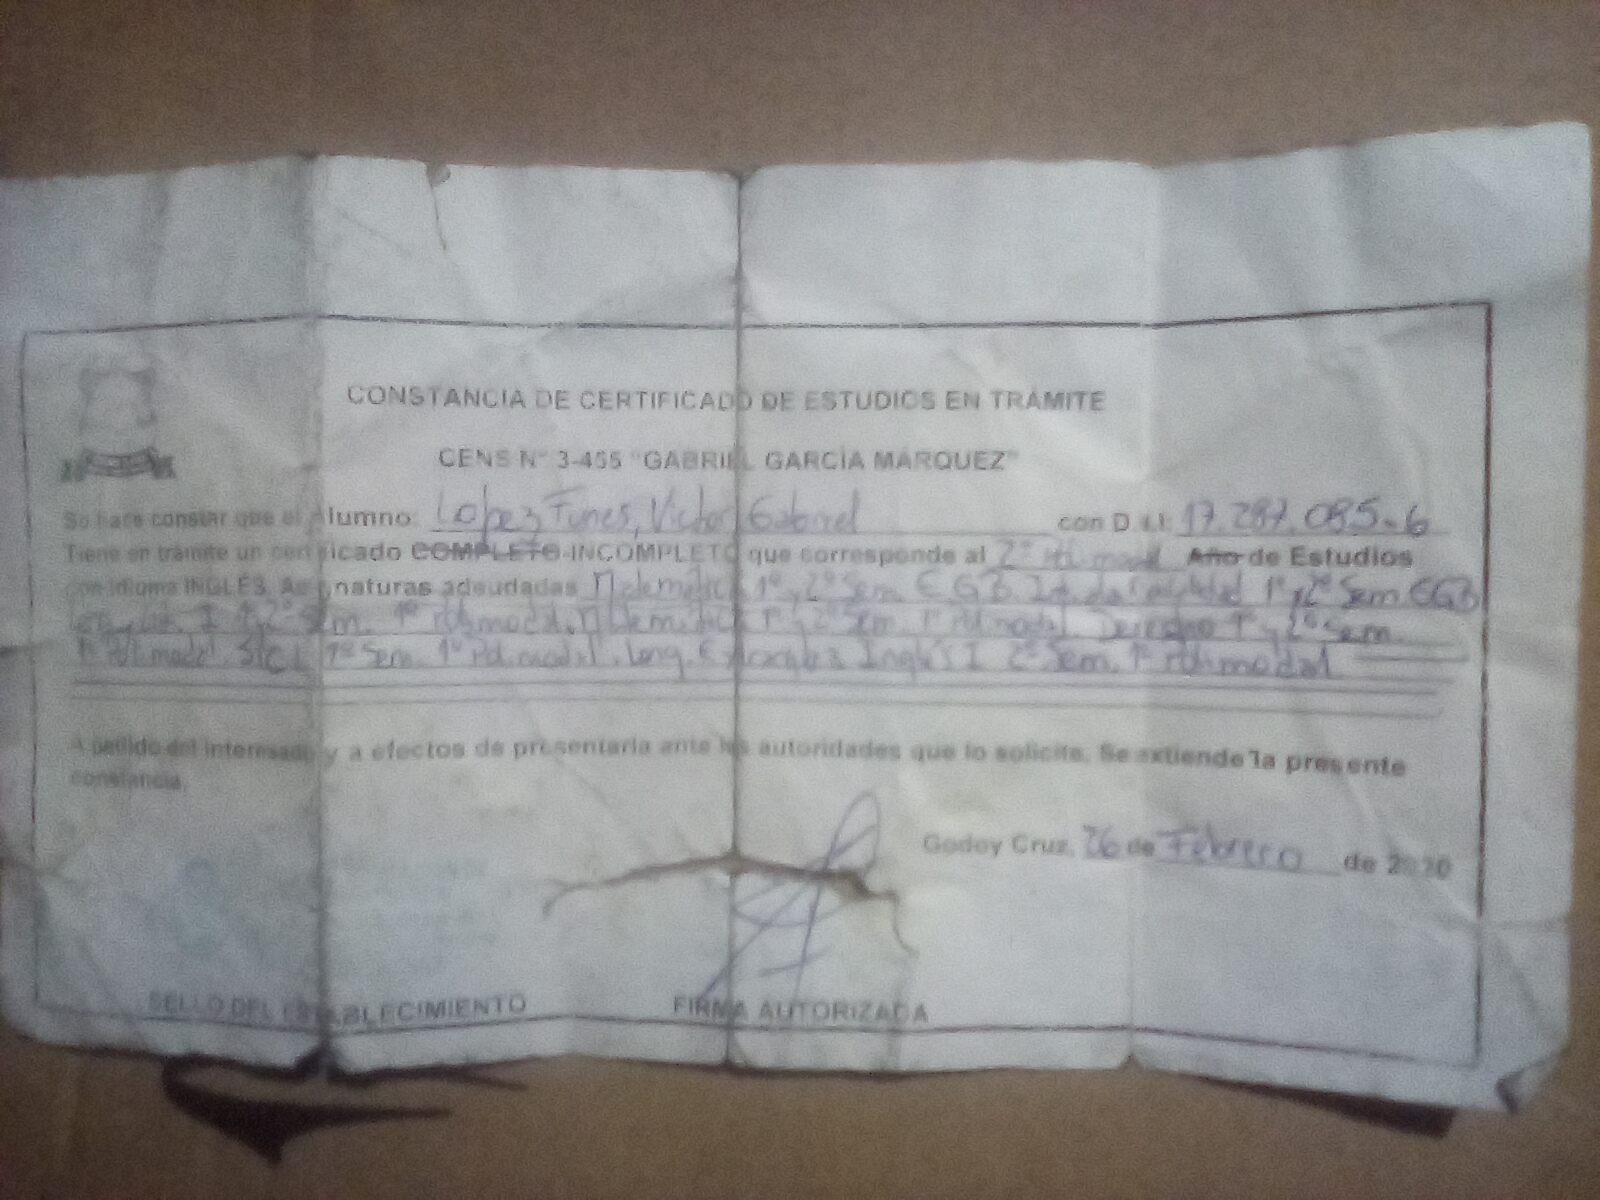 CONSTANCIA DE CERTIFICADO DE ESTUDIOS EN TRÁMITE
CENS N° 3-455 "GABRIEL GARCÍA MÁRQUEZ"
Se hace constar que el Alumno: Lopez Funes, Victor Gabriel con D.U.I: 17.287.085-6
Tiene en trámite un certificado COMPLETO-INCOMPLETO que corresponde al 2° Polimodal Año de Estudios
con Idioma INGLÉS. Asignaturas adeudadas Matemática 1° y 2° Sem EGB 1° y 2° Sem EGB
I 1° y 2° Sem. 1° Polimodal. Matemática 1° y 2° Sem. 1° Polimodal. Derecho 1° y 2° Sem.
1° Polimodal. SIC I 1° Sem. 1° Polimodal. Leng. Extranjera Inglés I 2° Sem. 1° Polimodal
A pedido del interesado y a efectos de presentarla ante las autoridades que lo solicite. Se extiende la presente
constancia.
Godoy Cruz, 26 de Febrero de 2020
SELLO DEL ESTABLECIMIENTO FIRMA AUTORIZADA